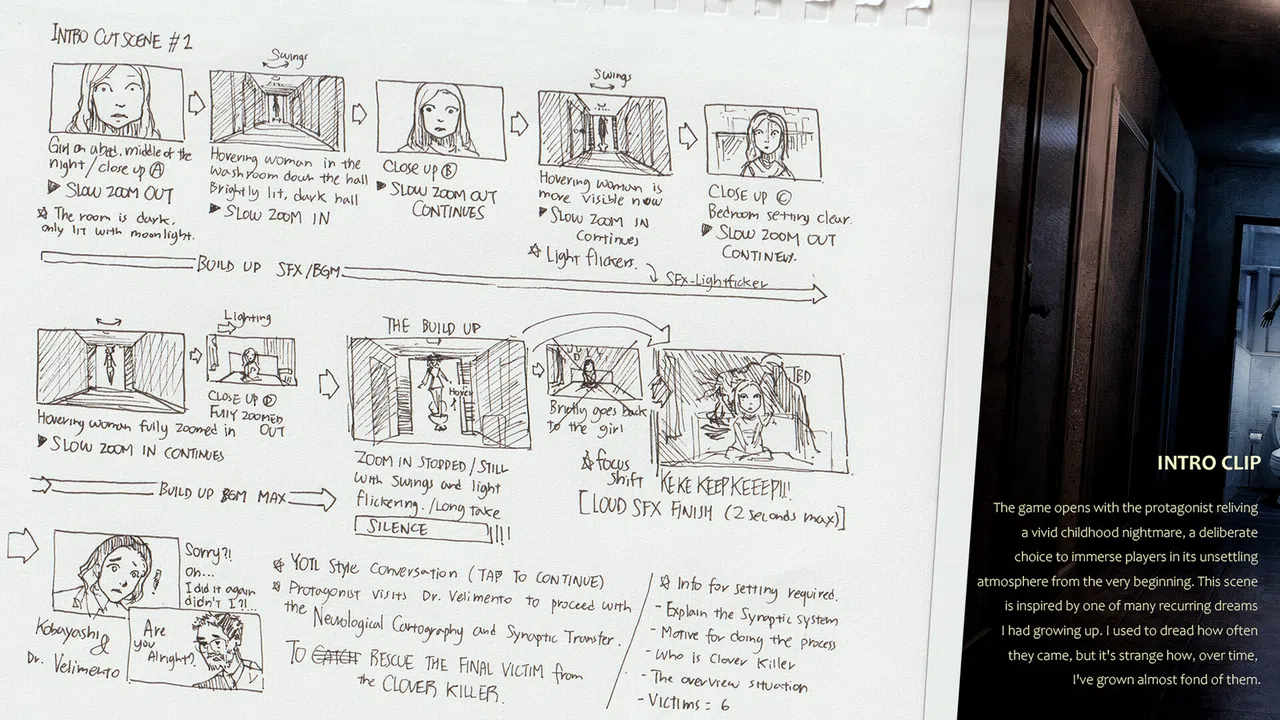 INTRO CUTSCENE #1
Swings
Swings
Girl on a bed, middle of the
night / close up Ⓐ
▶ SLOW ZOOM OUT
☆ The room is dark,
only lit with moonlight.
Hovering woman in the
washroom down the hall
Brightly lit, dark hall
▶ SLOW ZOOM IN
CLOSE UP Ⓑ
▶ SLOW ZOOM OUT
CONTINUES
Hovering woman is
more visible now
▶ SLOW ZOOM IN
Continues
☆ Light flickers.
CLOSE UP Ⓒ
Bedroom setting clear.
▶ SLOW ZOOM OUT
CONTINEY.
BUILD UP SFX/BGM
SFX-Lightflicker
Lighting
THE BUILD UP
Hovering woman fully zoomed in
▶ SLOW ZOOM IN CONTINUES
CLOSE UP
FULLY ZOOMED
OUT
Hover
ZOOM IN STOPPED/STILL
with swings and light
flickering. / Long take
SILENCE
Briefly goes back
to the girl
☆ focus
shift
TBD
KEKE KEEPKEEEP!!!
[LOUD SFX FINISH (2 seconds max)]
BUILD UP BGM MAX
Sorry?!
oh...
I did it again
didn't I?!...
Kobayashi &
Dr. Velimento
Are
you
Alright?.
☆ YOTL Style Conversation (TAP TO CONTINUE)
☆ Protagonist visits Dr. Velimento to proceed with
the Neurological Cartography and Synaptic Transfer.
TO CATCH RESCUE THE FINAL VICTIM from
the CLOVER KILLER.
☆ Info for setting required.
- Explain the Synaptic system
- Motive for doing the process
- Who is Clover Killer
- The overview situation
- Victims = 6
INTRO CLIP
The game opens with the protagonist reliving
a vivid childhood nightmare, a deliberate
choice to immerse players in its unsettling
atmosphere from the very beginning. This scene
is inspired by one of many recurring dreams
I had growing up. I used to dread how often
they came, but it's strange how, over time,
I've grown almost fond of them.